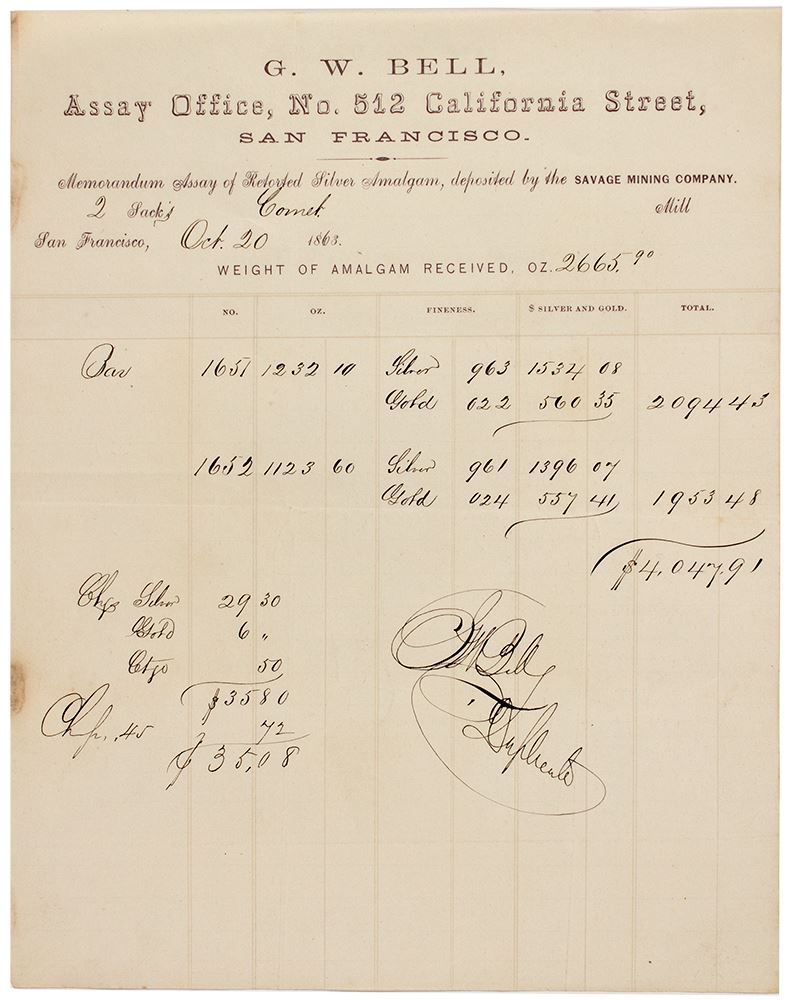 G. W. BELL,
Assay Office, No. 512 California Street,
SAN FRANCISCO.
Memorandum Assay of Retorted Silver Amalgam, deposited by the SAVAGE MINING COMPANY.
2 Sack's Comet Mill
San Francisco, Oct. 20 1863.
WEIGHT OF AMALGAM RECEIVED, OZ. 2665.90
NO. OZ. FINENESS. $ SILVER AND GOLD. TOTAL.
Bar 1651 1232 10 Silver 963 1534 08
Gold 022 560 35 2094 43
1652 1123 60 Silver 961 1396 07
Gold 024 557 41 1953 48
$4,047.91
Chgs Silver 29 30
Gold 6 "
50
$35 80
.45 72
$35,08
GW Bell
Duplicate